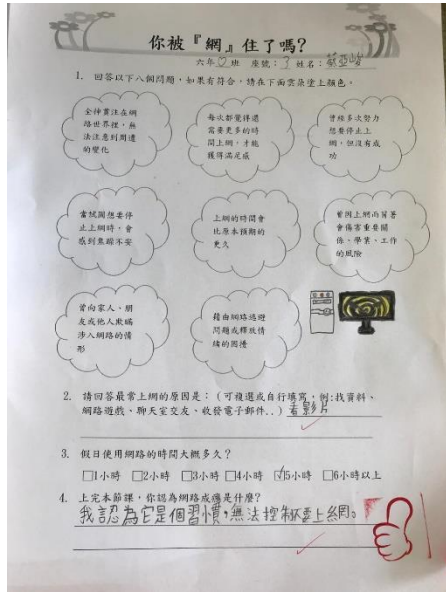 你被『網』住了嗎?
六年 班 座號: 姓名:
1. 回答以下八個問題,如果有符合,請在下面雲朵塗上顏色。
全神貫注在網
路世界裡,無
法注意到周遭
的變化
每次都覺得還
需要更多的時
間上網,才能
獲得滿足感
曾經多次努力
想要停止上
網,但沒有成
功
當試圖想要停
止上網時,會
感到焦躁不安
上網的時間會
比原本預期的
更久
曾因上網而冒著
會傷害重要關
係、學業、工作
的風險
曾向家人、朋
友或他人欺瞞
涉入網路的情
形
藉由網路逃避
問題或釋放情
緒的困擾
2. 請回答最常上網的原因是:(可複選或自行填寫,例:找資料、
網路遊戲、聊天室交友、收發電子郵件..) 看影片
3. 假日使用網路的時間大概多久?
□1小時 □2小時 □3小時 □4小時 ☑5小時 □6小時以上
4. 上完本節課,你認為網路成癮是什麼?
我認為它是個習慣,無法控制上網。